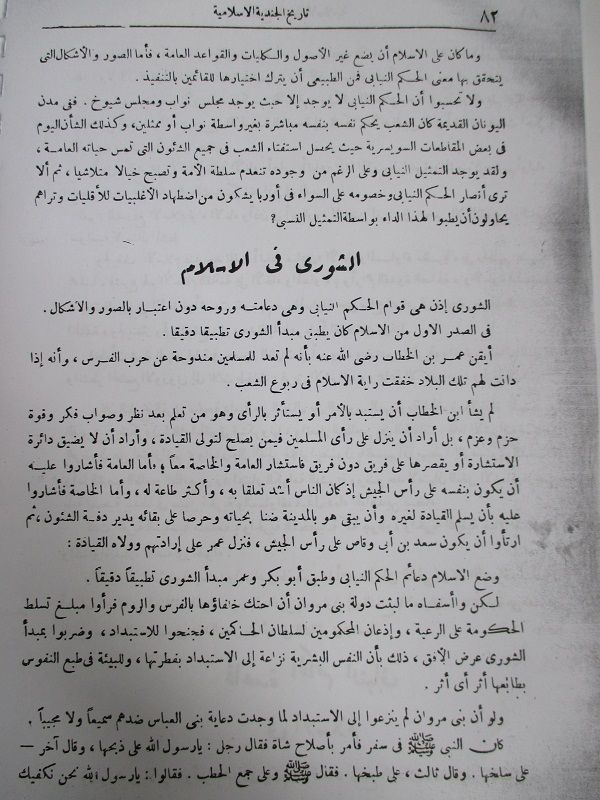 ٨٢ تاريخ الجندية الاسلامية
وما كان على الاسلام أن يضع غير الأصول والكليات والقواعد العامة ، فأما الصور والأشكال التى
يتحقق بها معنى الحكم النيابى فمن الطبيعى أن يترك اختيارها للقائمين بالتنفيذ .
ولا تحسبوا أن الحكم النيابى لا يوجد إلا حيث يوجد مجلس نواب ومجلس شيوخ . ففى مدن
اليونان القديمة كان الشعب يحكم نفسه بنفسه مباشرة بغير واسطة نواب أو ممثلين، وكذلك الشأن اليوم
فى بعض المقاطعات السويسرية حيث يحصل استفتاء الشعب فى جميع الشئون التى تمس حياته العامة ،
ولقد يوجد التمثيل النيابى وعلى الرغم من وجوده تنعدم سلطة الأمة وتصبح خيالا متلاشيا ، ثم ألا
ترى أنصار الحكم النيابى وخصومه على السواء فى أوربا يشكون من اضطهاد الأغلبيات للأقليات وتراهم
يحاولون أن يطبوا لهذا الداء بواسطة التمثيل النسبى ؟
الشورى فى الاسلام
الشورى إذن هى قوام الحكم النيابى وهى دعامته وروحه دون اعتبار بالصور والاشكال .
فى الصدر الاول من الاسلام كان يطبق مبدأ الشورى تطبيقا دقيقا .
أيقن عمر بن الخطاب رضى الله عنه بأنه لم تعد للمسلمين مندوحة عن حرب الفرس ، وأنه إذا
دانت لهم تلك البلاد خفقت راية الاسلام فى ربوع الشعب .
لم يشأ ابن الخطاب أن يستبد بالأمر أو يستأثر بالرأى وهو من تعلم بعد نظر وصواب فكر وقوة
حزم وعزم ، بل أراد أن ينزل على رأى المسلمين فيمن يصلح لتولى القيادة ، وأراد أن لا يضيق دائرة
الاستشارة أو يقصرها على فريق دون فريق فاستشار العامة والخاصة معاً ؛ أما العامة فأشاروا عليه
أن يكون بنفسه على رأس الجيش إذ كان الناس أشد تعلقا به ، وأكثر طاعة له ، وأما الخاصة فأشاروا
عليه بأن يسلم القيادة لغيره وأن يبقى هو بالمدينة ضنا بحياته وحرصا على بقائه يدير دفة الشئون ، ثم
ارتأوا أن يكون سعد بن أبى وقاص على رأس الجيش ، فنزل عمر على إرادتهم وولاه القيادة :
وضع الاسلام دعائم الحكم النيابى وطبق أبو بكر وعمر مبدأ الشورى تطبيقاً دقيقاً .
لكن واأسفاه ما لبثت دولة بنى مروان أن احتك خلفاؤها بالفرس والروم فرأوا مبلغ تسلط
الحكومة على الرعية ، وإذعان المحكومين لسلطان الحاكمين ، فجنحوا للاستبداد، وضربوا بمبدأ
الشورى عرض الأفق ، ذلك بأن النفس البشرية نزاعة إلى الاستبداد بفطرتها ، وللبيئة فى طبع النفوس
بطابعها أثر أى أثر .
ولو أن بنى مروان لم ينزعوا إلى الاستبداد لما وجدت دعاية بنى العباس ضدهم سميعاً ولا مجيباً .
كان النبى ﷺ فى سفر فأمر بأصلاح شاة فقال رجل : يارسول الله على ذبحها ، وقال آخر —
على سلخها . وقال ثالث ، على طبخها . فقال ﷺ وعلى جمع الحطب . فقالوا : يارسول الله نحن نكفيك